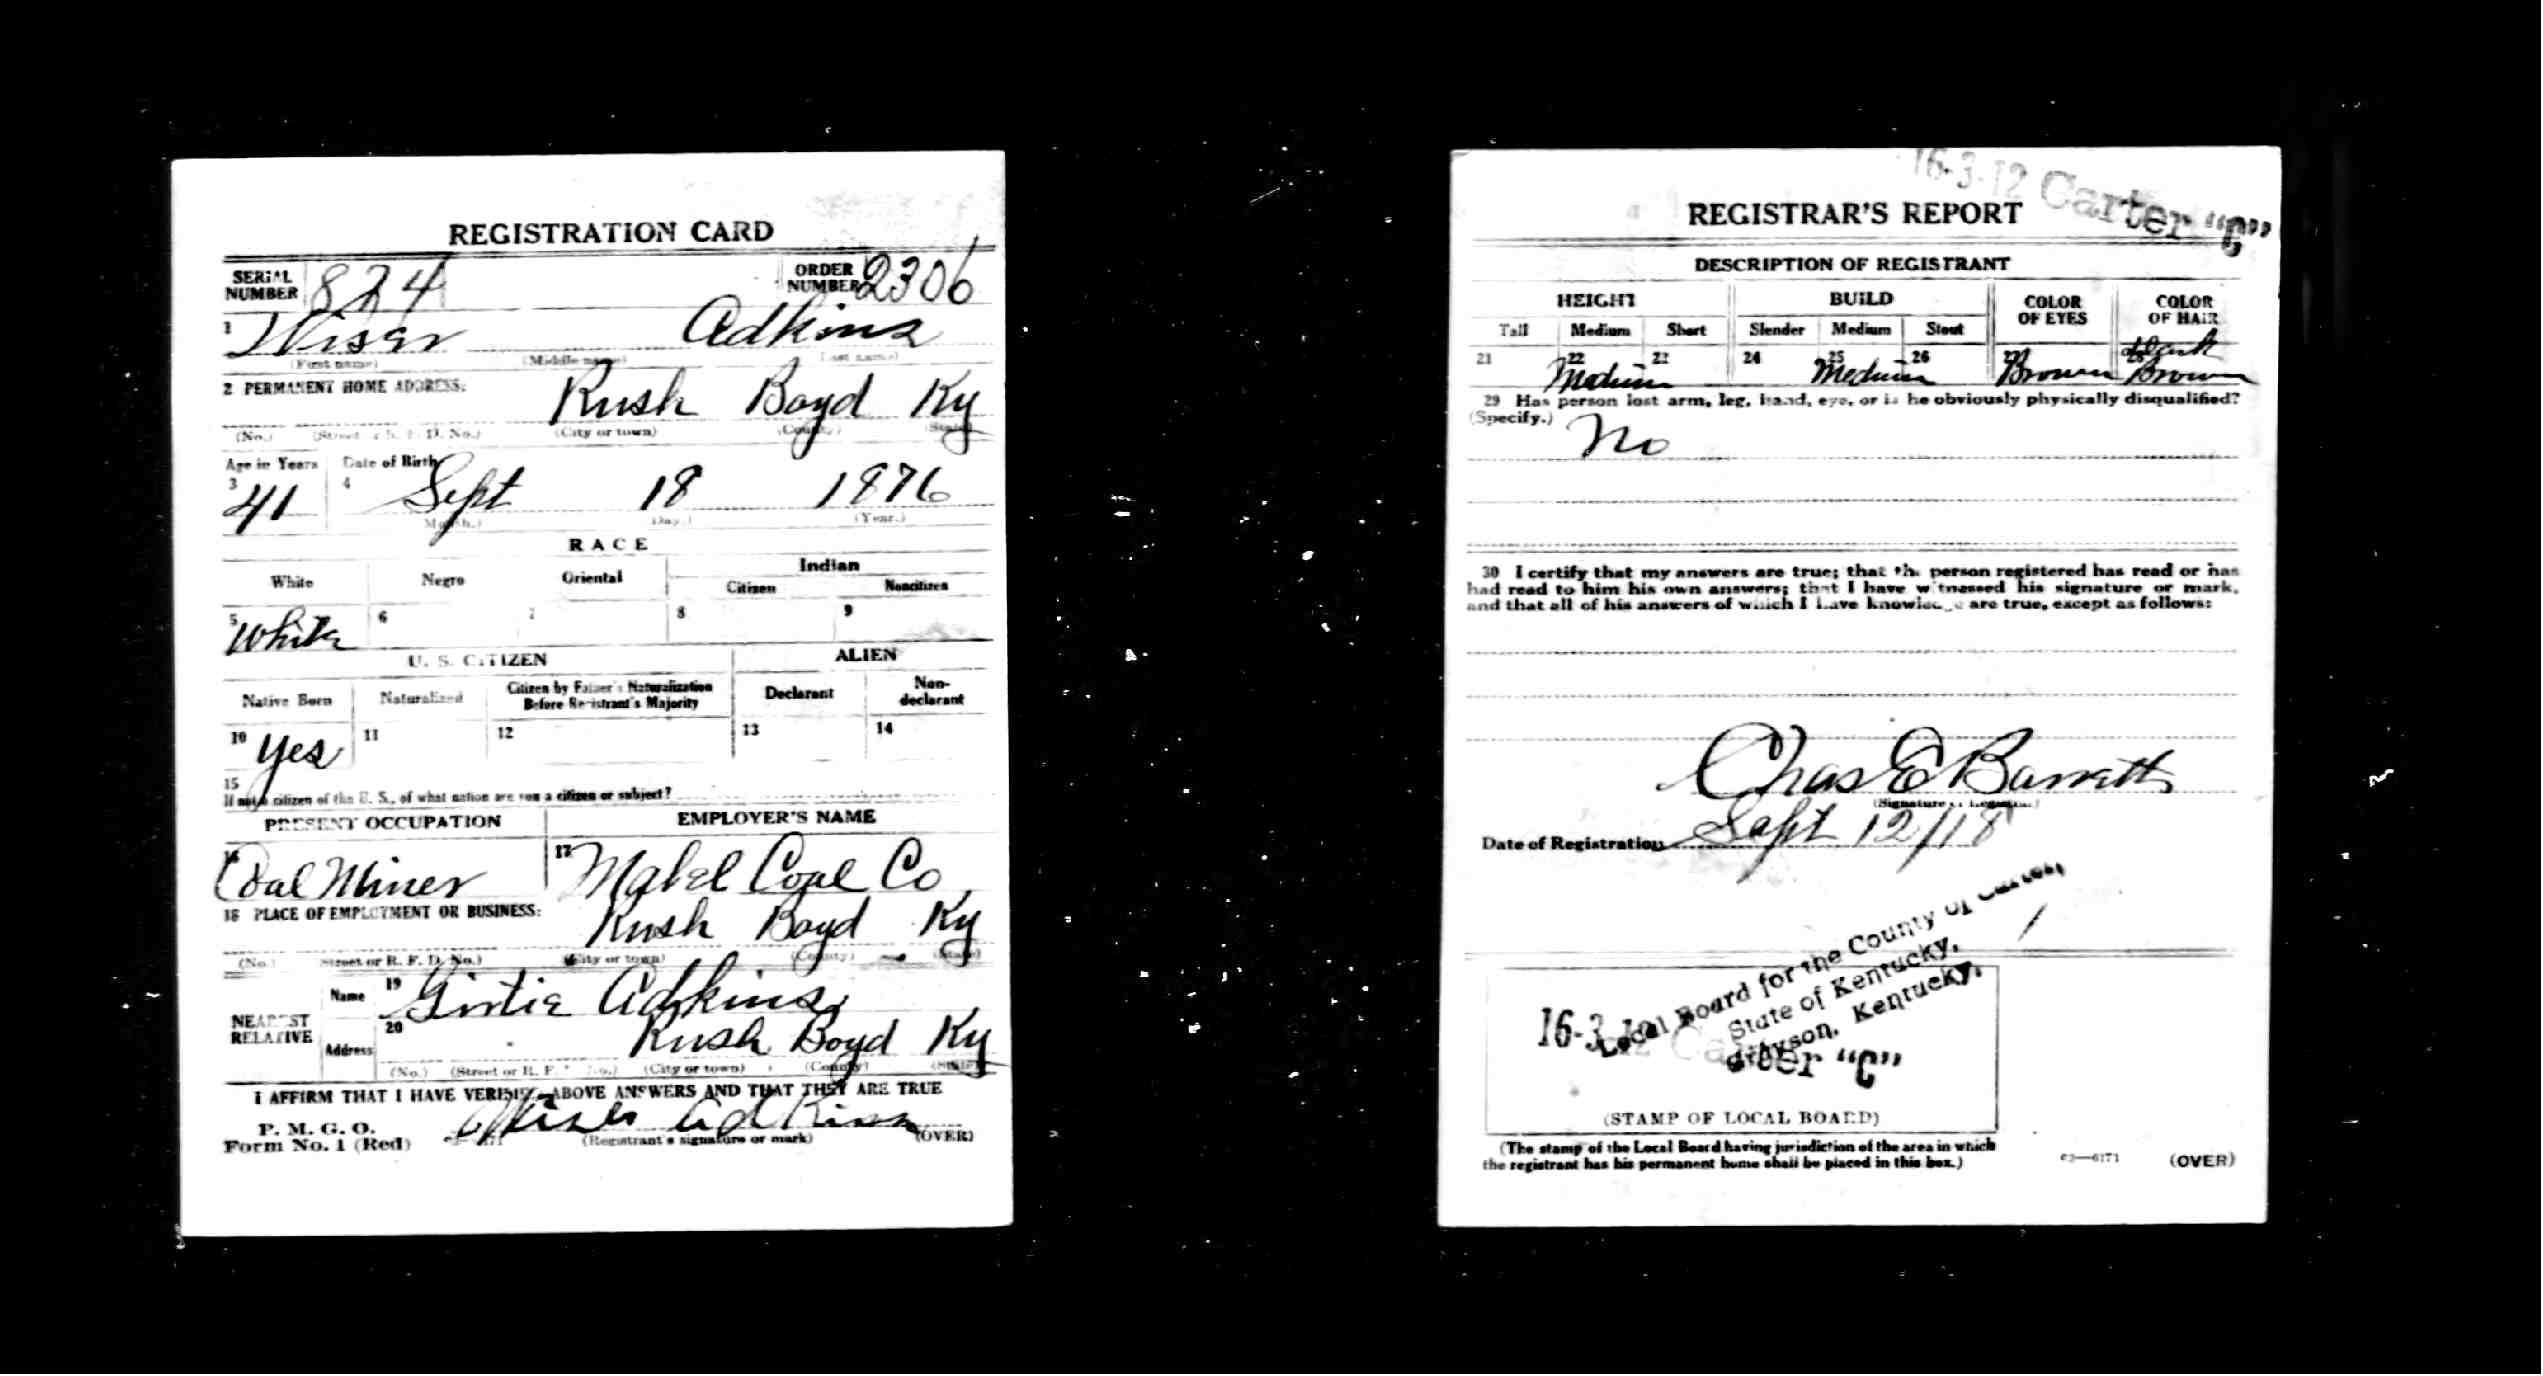 REGISTRATION CARD
SERIAL NUMBER 824 ORDER NUMBER 2306
1 Wiser Adkins
(First name) (Middle name) (Last name)
2 PERMANENT HOME ADDRESS:
Rush Boyd Ky
(No.) (Street or R. F. D. No.) (City or town) (County) (State)
Age in Years Date of Birth
3 41 4 Sept 18 1876
(Month.) (Day.) (Year.)
RACE
White Negro Oriental Indian
Citizen Noncitizen
5 White 6 7 8 9
U. S. CITIZEN ALIEN
Native Born Naturalized Citizen by Father's Naturalization Before Registrant's Majority Declarant Non-declarant
10 Yes 11 12 13 14
15
If not a citizen of the U. S., of what nation are you a citizen or subject?
PRESENT OCCUPATION EMPLOYER'S NAME
16 Coal Miner 17 Mabel Coal Co
18 PLACE OF EMPLOYMENT OR BUSINESS:
Rush Boyd Ky
(No.) (Street or R. F. D. No.) (City or town) (County) (State)
NEAREST RELATIVE
Name 19 Girtie Adkins
Address 20 Rush Boyd Ky
(No.) (Street or R. F. D. No.) (City or town) (County) (State)
I AFFIRM THAT I HAVE VERIFIED ABOVE ANSWERS AND THAT THEY ARE TRUE
P. M. G. O.
Form No. 1 (Red) Wiser Adkins
(Registrant's signature or mark) (OVER)
16-3-12 Carter "C"
REGISTRAR'S REPORT
DESCRIPTION OF REGISTRANT
HEIGHT BUILD COLOR OF EYES COLOR OF HAIR
Tall Medium Short Slender Medium Stout
21 22 Medium 23 24 25 Medium 26 27 Brown 28 Dark Brown
29 Has person lost arm, leg, hand, eye, or is he obviously physically disqualified?
(Specify.) No
30 I certify that my answers are true; that the person registered has read or has
had read to him his own answers; that I have witnessed his signature or mark,
and that all of his answers of which I have knowledge are true, except as follows:
Chas E Barrett
(Signature of Registrar)
Date of Registration Sept 12/18
Local Board for the County of Carter,
State of Kentucky,
Grayson, Kentucky.
16-3-12 Carter "C"
(STAMP OF LOCAL BOARD)
(The stamp of the Local Board having jurisdiction of the area in which
the registrant has his permanent home shall be placed in this box.)
(OVER)